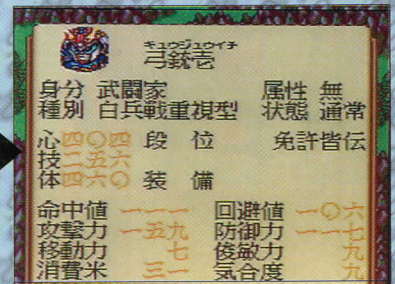 キュウジュウイチ
弓銃壱
身分 武闘家 属性 無
種別 白兵戦重視型 状態 通常
心四〇四 段位 免許皆伝
技二五六
体四六〇 装備
命中値 一一一 回避値 一〇六
攻撃力 一五九 防御力 一一七
移動力 七 俊敏力 九
消費米 三一 気合度 九